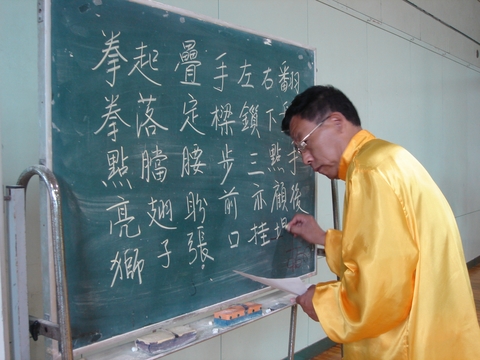 拳起疊手左右翻
拳落定樑鎖下
點膛腰步三點手
亮翅盼前亦顧後
獅子張口挂